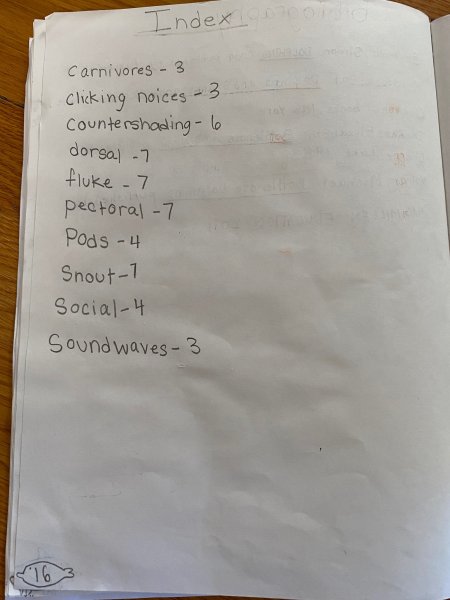 Index
Carnivores - 3
clicking noices - 3
Countershading - 6
dorsal - 7
fluke - 7
pectoral - 7
Pods - 4
Snout - 7
Social - 4
Soundwaves - 3
16